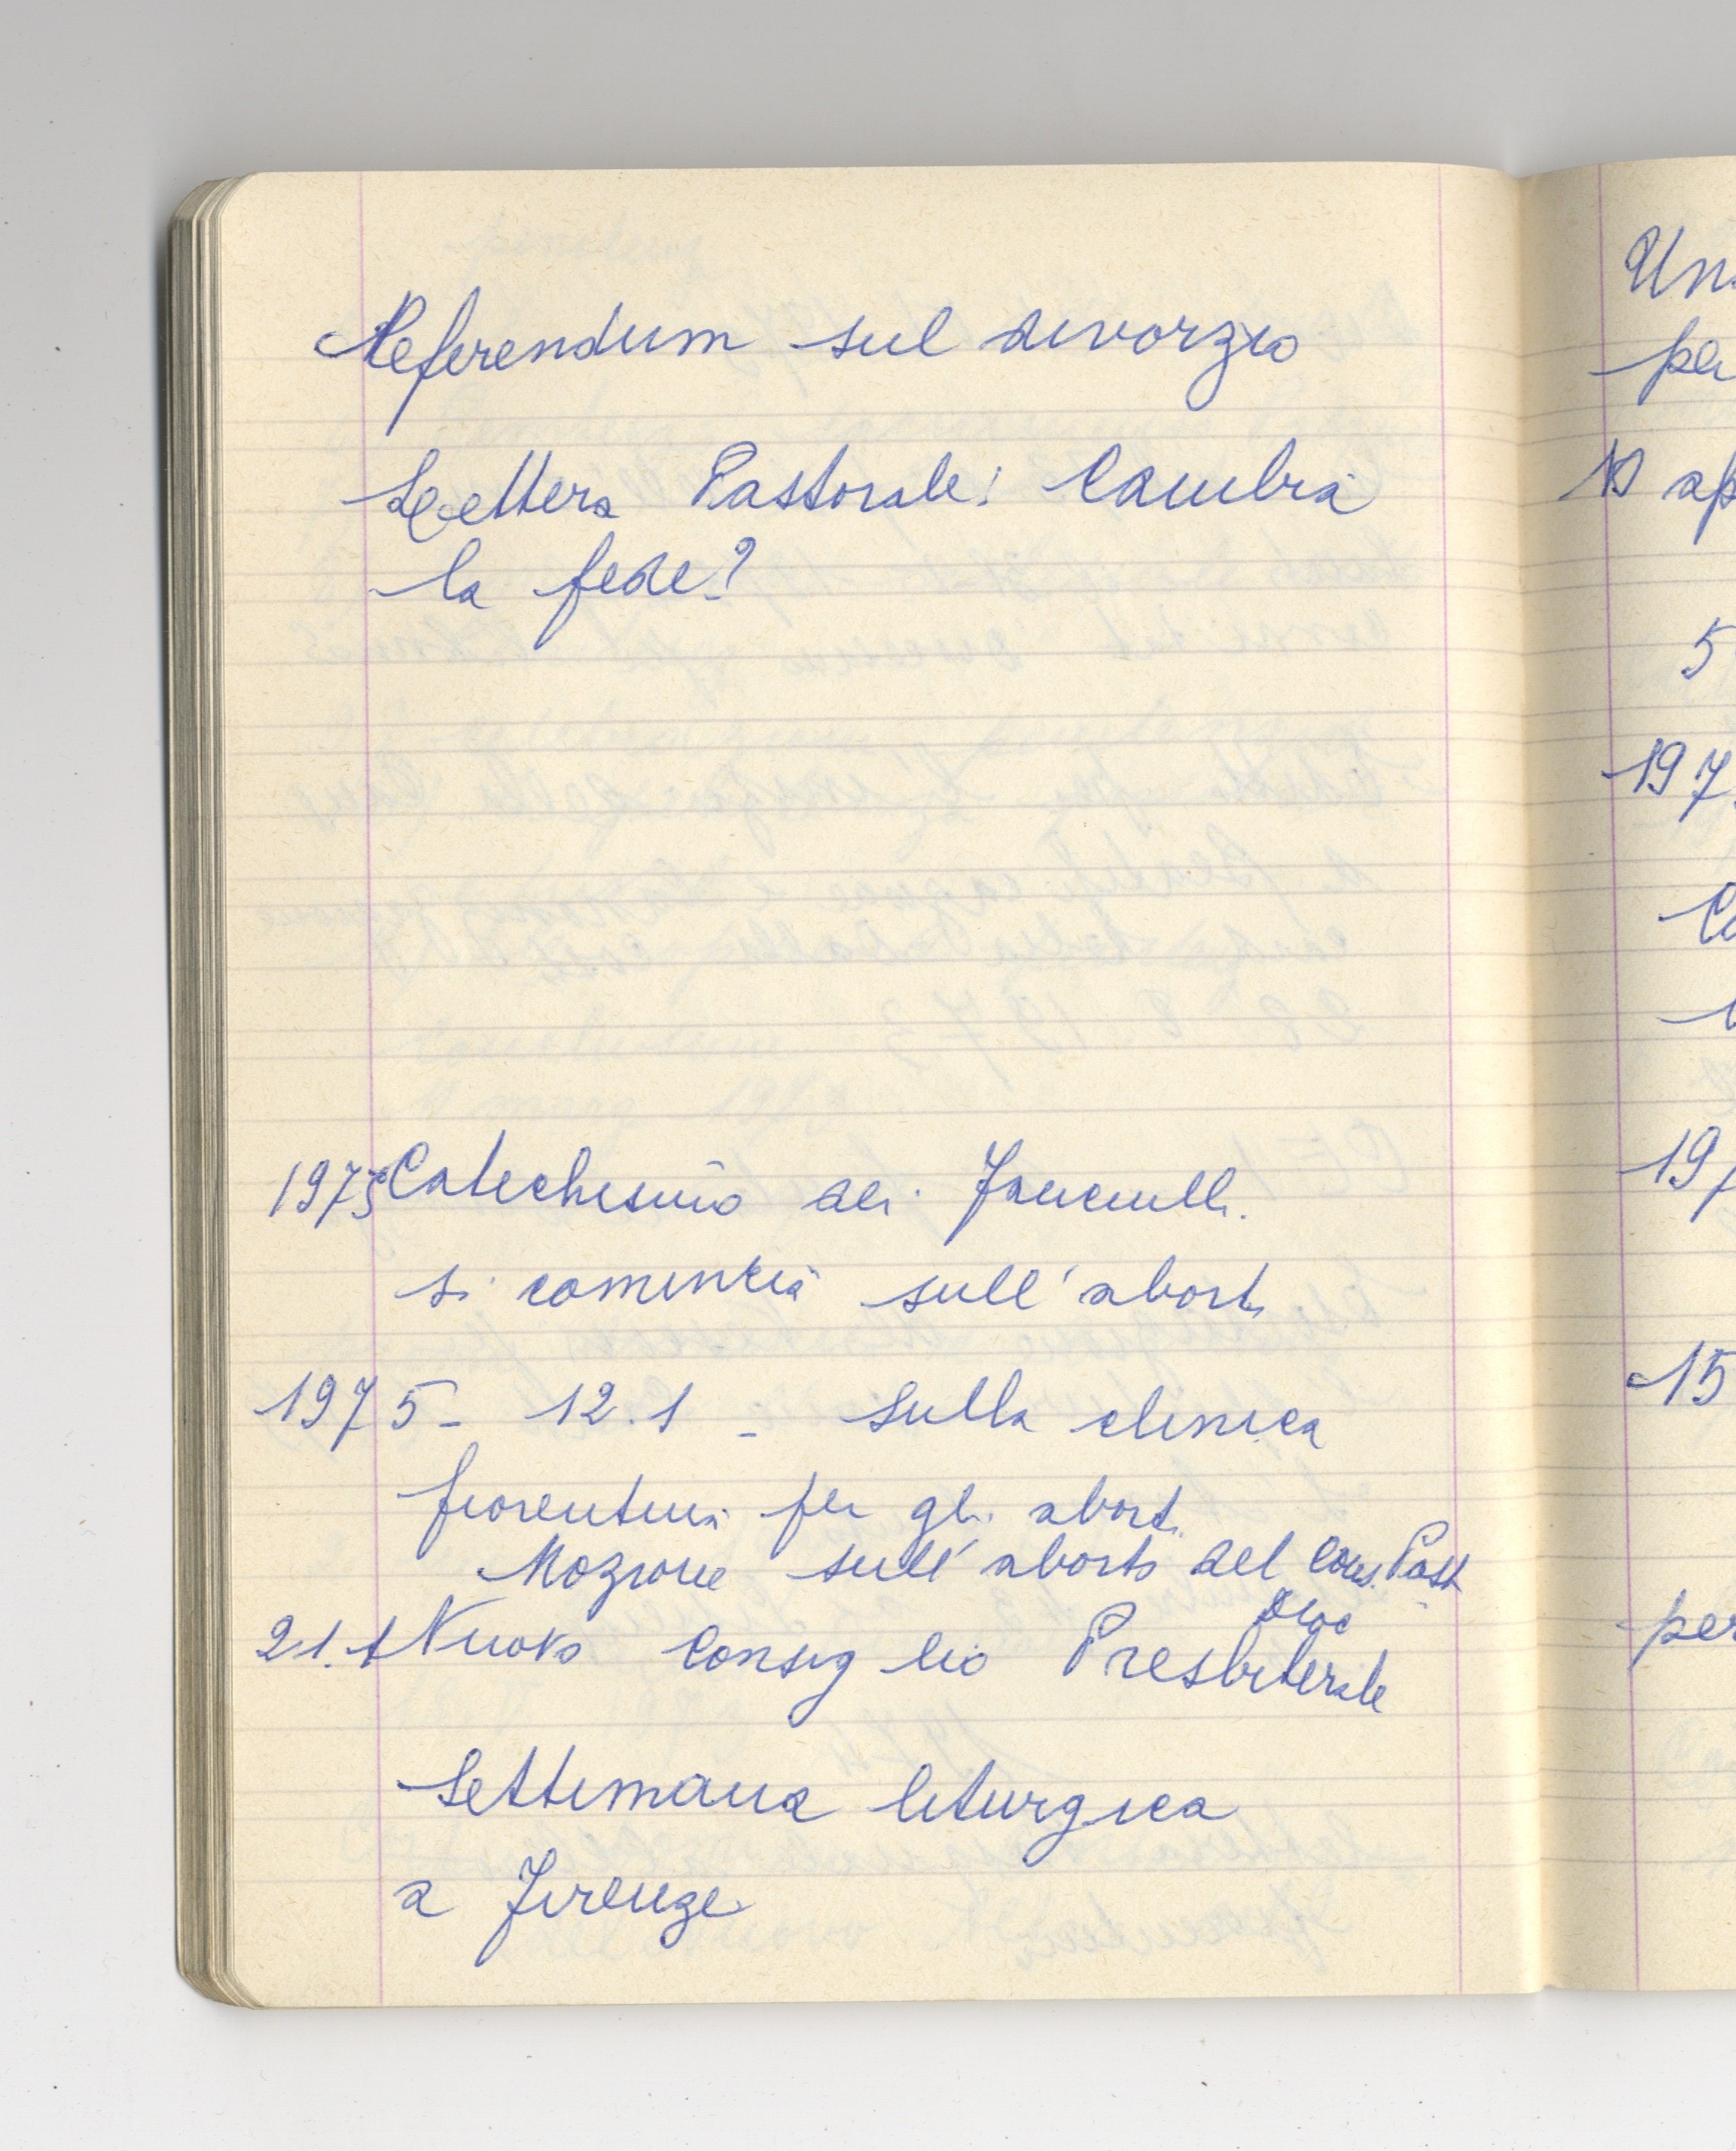 Referendum sul divorzio
Lettera Pastorale: Cambia
la fede?
1975 Catechismo dei Fanciulli.
si comincia sull'aborto
1975 - 12.1 - sulla clinica
fiorentina per gli aborti.
Mozione sull'aborto del Cons. Past
Dioc
21.1 Nuovo Consiglio Presbiterale
Settimana liturgica
a Firenze
Un
per
10 ap
5
197
19
15
per